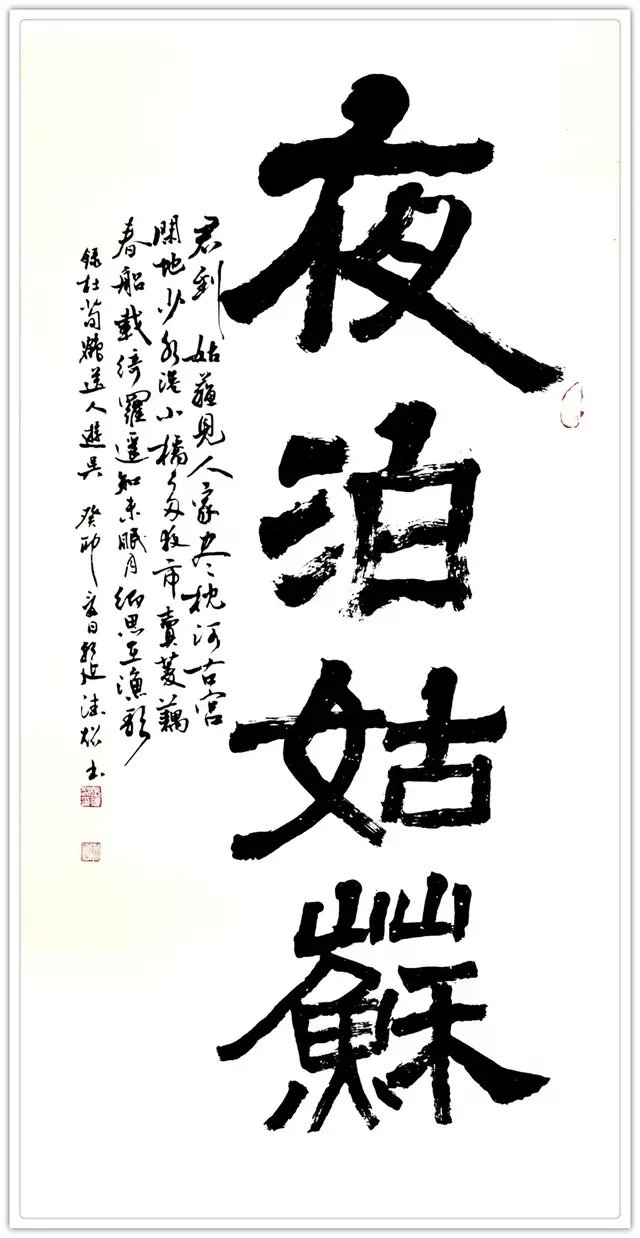 夜泊姑蘇
君到姑蘇見人家尽枕河古宮
閑地少水港小橋多夜市賣菱藕
春船載綺羅遥知未眠月鄉思在漁歌
録杜荀鶴送人遊吳 癸卯夏日 书